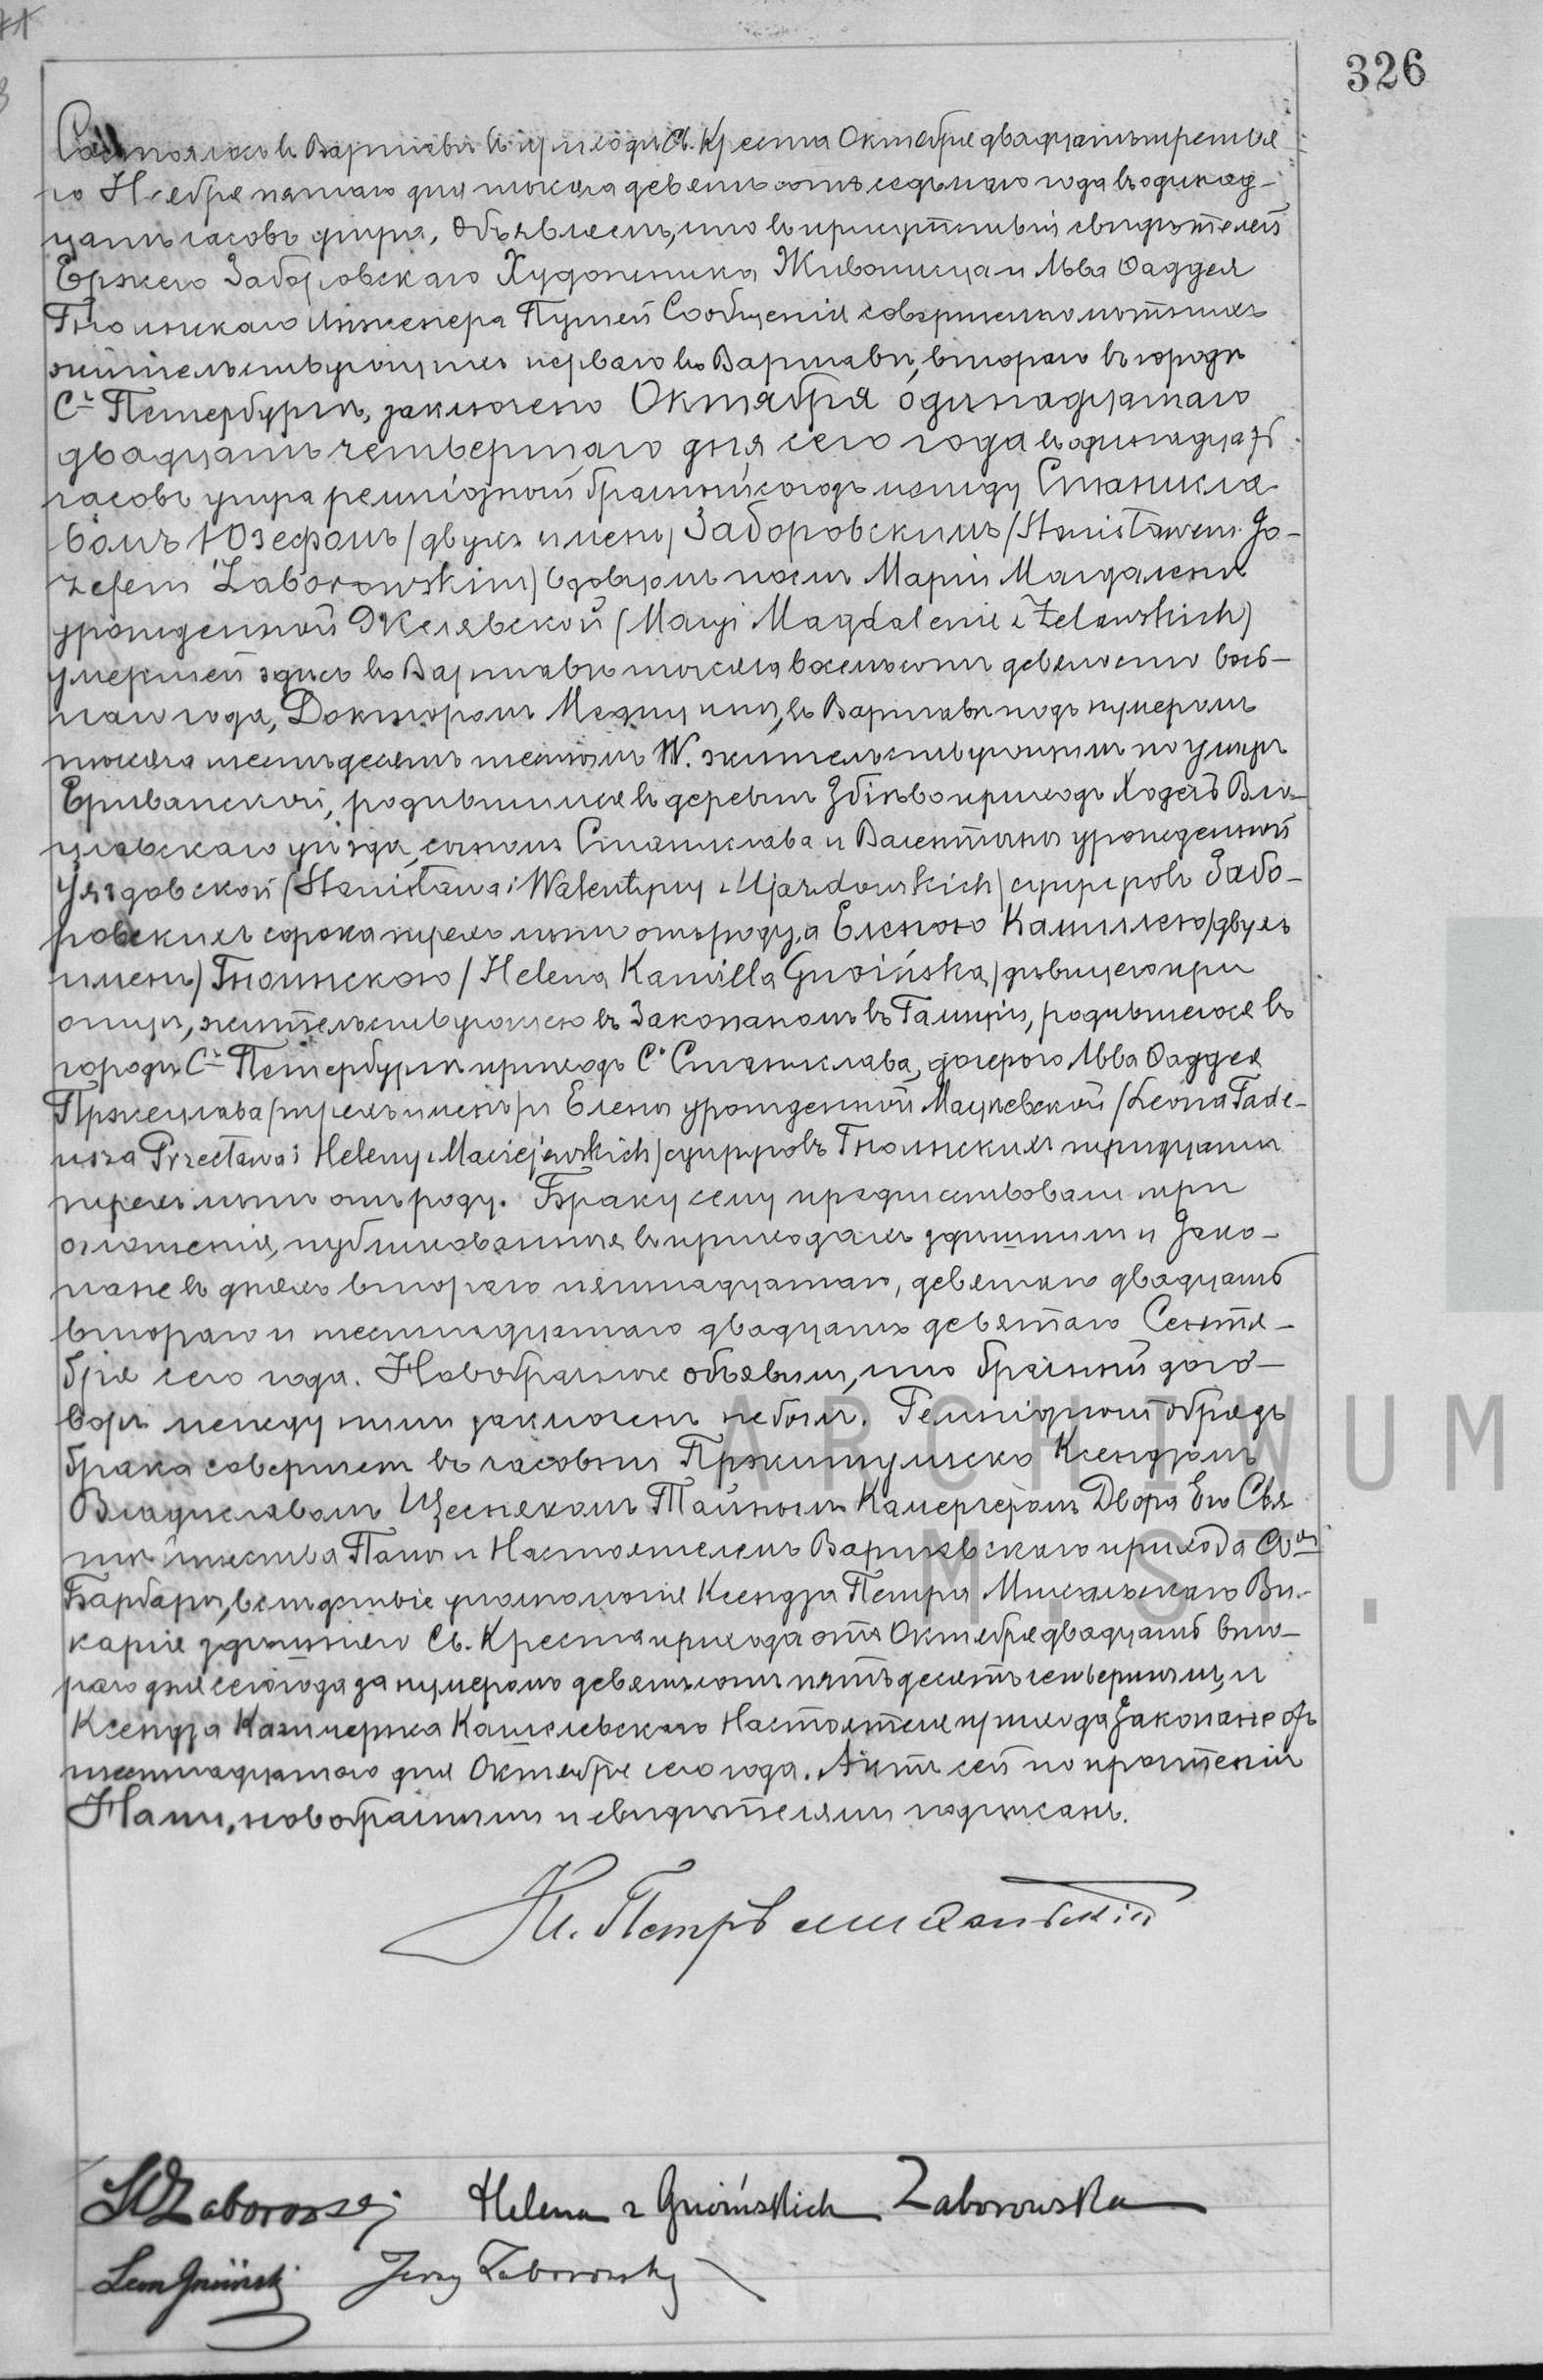 326
Состоялось въ Варшавѣ въ приходѣ Св. Креста Октября двадцать третья-
го Ноября пятаго дня тысяча девятьсотъ седьмаго года въ одинад-
цать часовъ утра. Объявляемъ, что въ присутствіи свидѣтелей
Ержего Заборовскаго Художника Живописца и Льва Фаддея
Гноинскаго Инженера Путей Сообщенія совершеннолѣтнихъ
жительствующихъ перваго въ Варшавѣ, втораго въ городѣ
Сᵗ Петербургѣ, заключено Октября одинадцатаго
двадцать четвертаго дня сего года въ одинадцать
часовъ утра религіозный брачный союзъ между Станисла-
вомъ Юзефомъ /двухъ именъ/ Заборовскимъ /Stanisławem Jo-
zefem Zaborowskim/ вдовцомъ послѣ Маріи Магдалены
урожденной Желявской (Maryi Magdalenie z Żelawskich)
умершей здѣсь въ Варшавѣ тысяча восемьсотъ девяносто вось-
маго года, Докторомъ Медицины, въ Варшавѣ подъ нумеромъ
тысяча шестьдесятъ шестымъ W. жительствующимъ по улицѣ
Ериванской, родившимся въ деревнѣ приходѣ Ходечъ Вло-
цлавскаго уѣзда, сыномъ Станислава и Валентины урожденной
Уяздовской (Stanisława i Walentyny z Ujazdowskich) супруговъ Забо-
ровскихъ сорока трехъ лѣтъ отъ роду, а Еленою Камиллею /двухъ
именъ) Гноинскою /Helena Kamilla Gnoińska/ дѣвицею при
отцѣ, жительствующею въ Закопаномъ въ Галиціи, родившеюся въ
городѣ Сᵗ Петербургѣ приходѣ Сᵗ Станислава, дочерью Льва Фаддея
Пржецлава /трехъ именъ/ и Елены урожденной Мацѣевской /Leona Tade-
usza Przecława i Heleny z Maciejewskich) супруговъ Гноинскихъ тридцати
трехъ лѣтъ отъ роду. Браку сему предшествовали три
оглашенія, публикованныя въ приходахъ здѣшнимъ и Зако-
пане въ дняхъ втораго пятнадцатаго, девятаго двадцать
втораго и шестнадцатаго двадцать девятаго Сентя-
бря сего года. Новобрачные объявили, что брачный дого-
воръ между ними заключенъ не былъ. Религіозный обрядъ
брака совершенъ въ часовни Пржитулиско Ксендзомъ
Владиславомъ Щеснякомъ Тайнымъ Камергеромъ Двора Его Свя-
тѣйшества Папы и Настоятелемъ Варшавскаго прихода Св
Барбары, вслѣдствіе уполномочія Ксендза Петра Михальскаго Ви-
карія здѣшняго Св. Креста прихода отъ Октября двадцать вто-
раго дня сего года за нумеромъ девятьсотъ пятьдесятъ четвертымъ, и
Ксендза Казимержа Кашелевскаго Настоятеля прихода Закопане отъ
шестнадцатаго дня Октября сего года. Актъ сей по прочтеніи
Нами, новобрачными и свидѣтелями подписанъ.
Кс. Петръ Михальскій
St Zaborowski Helena z Gnoińskich Zaborowska
Leon Gnoiński Jerzy Zaborowski
ARCHIWUM
M. ST.